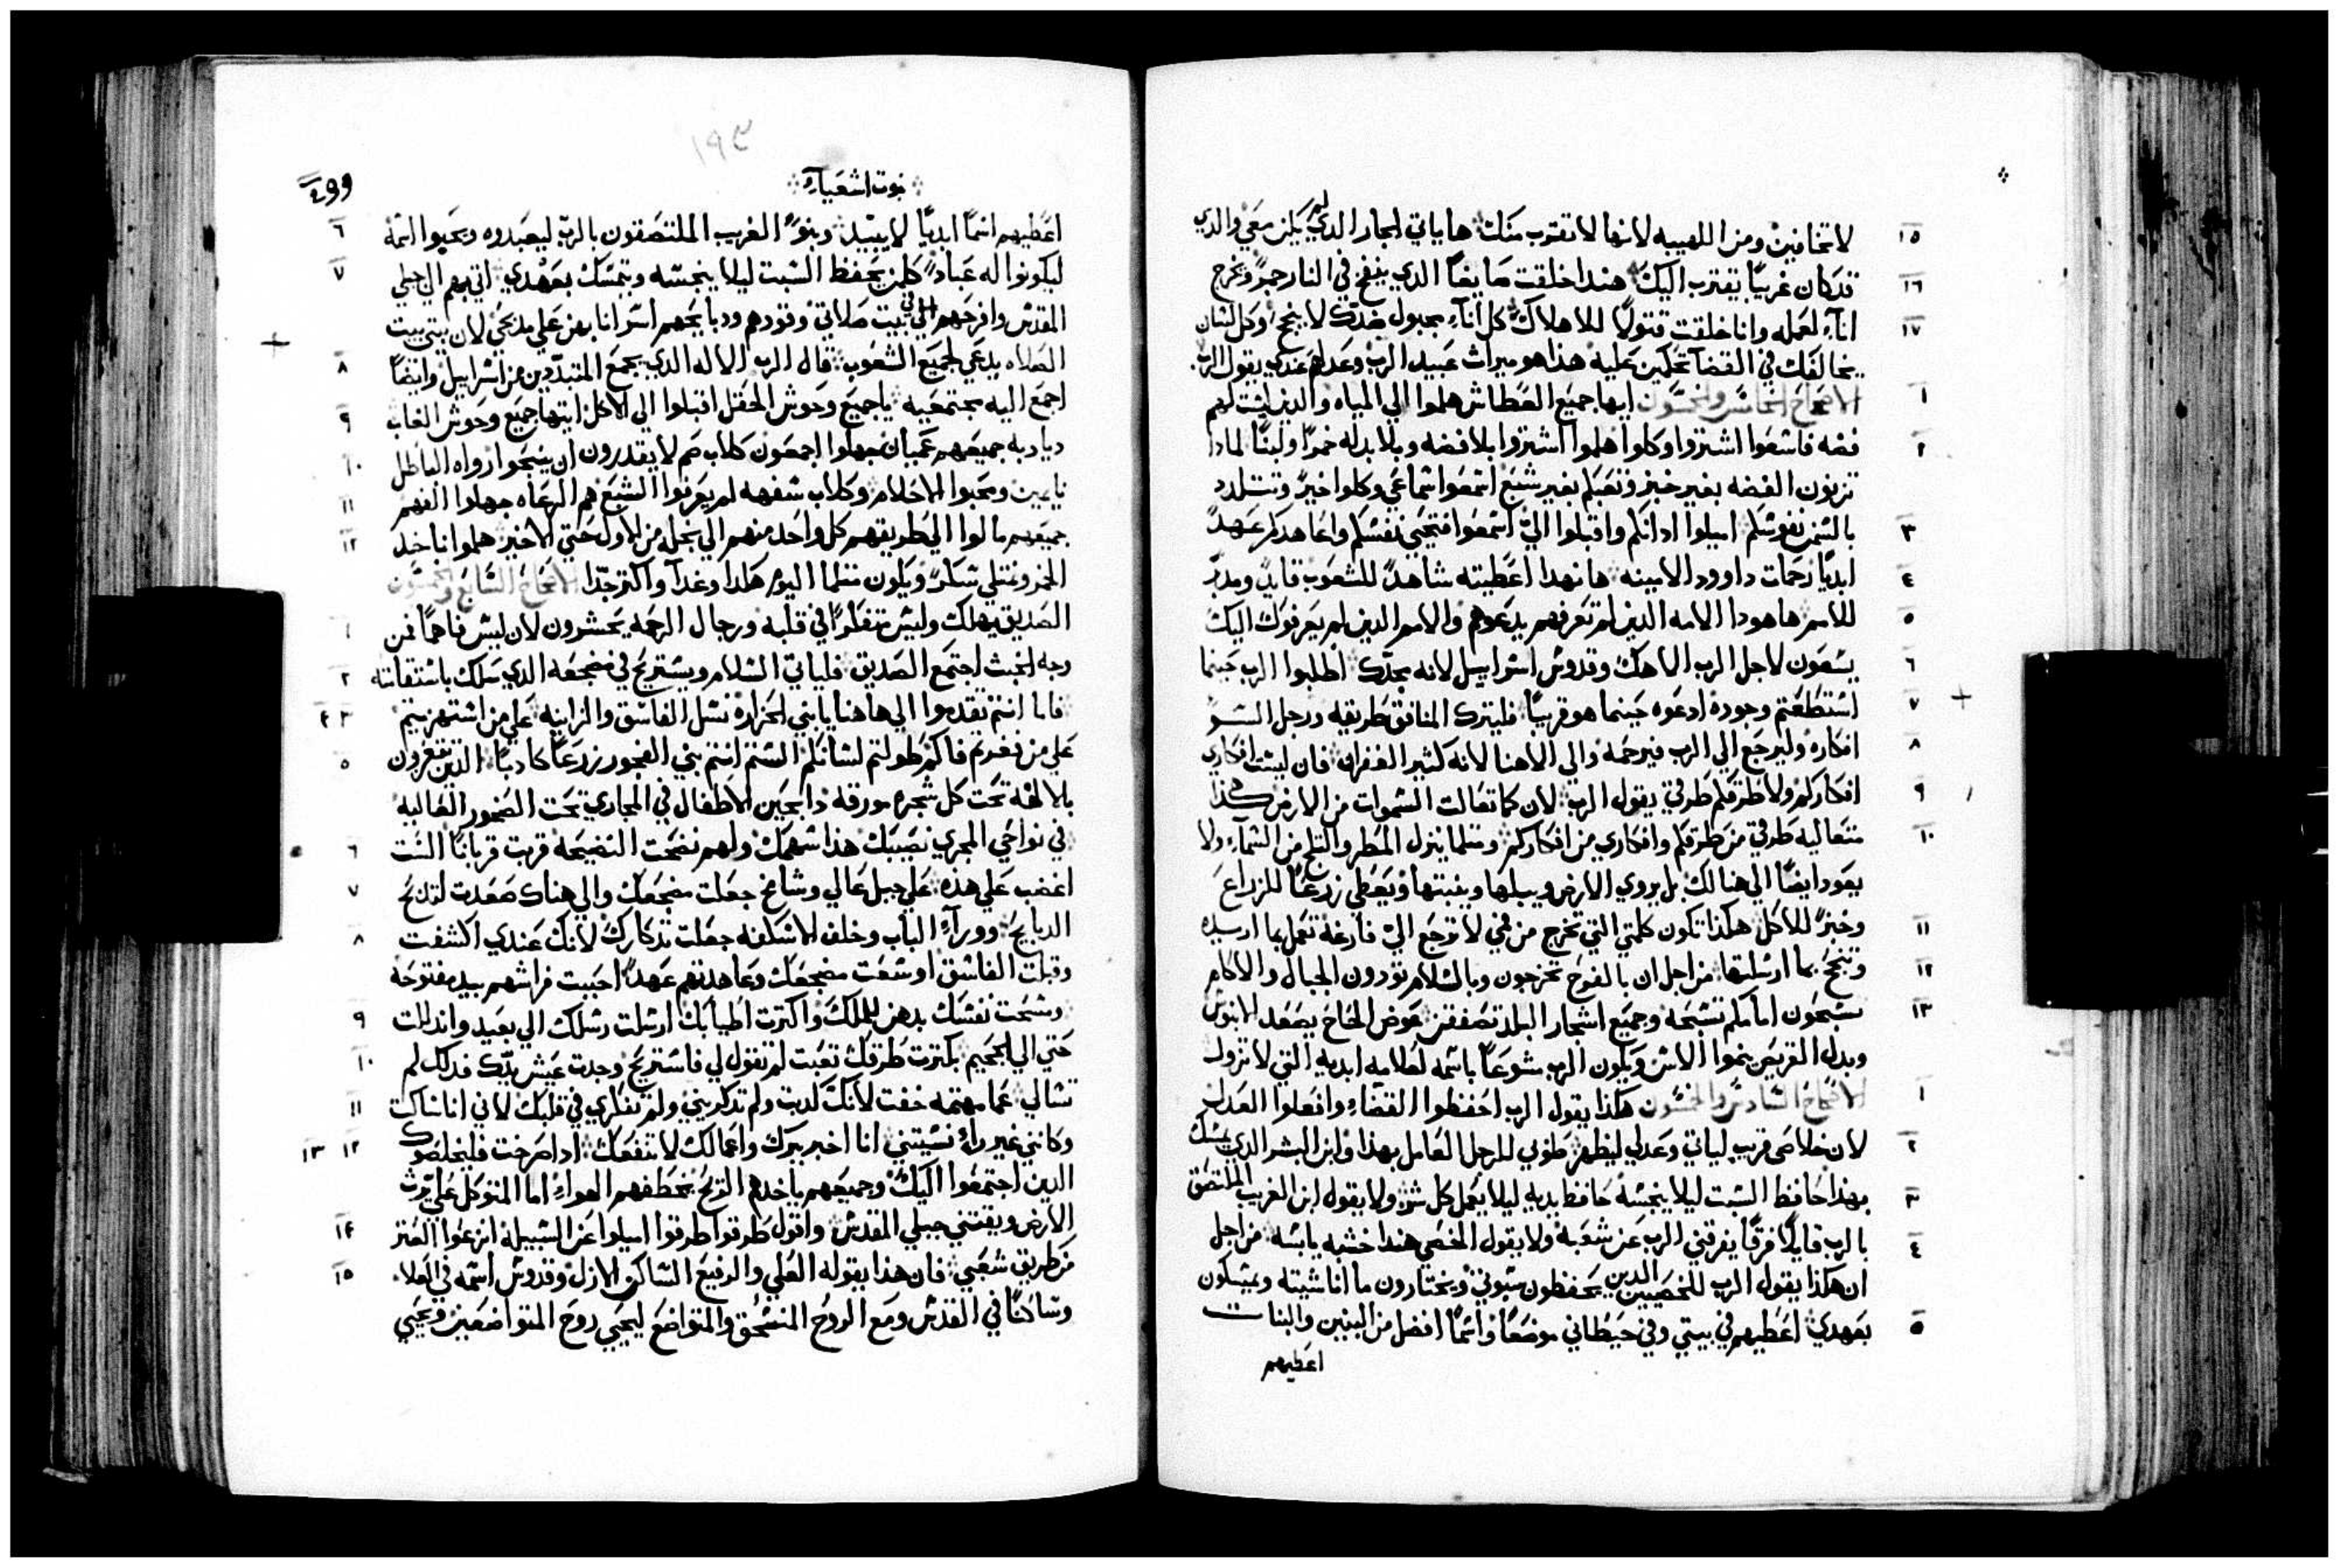 ١٥ لا تخافين ومن اللهيبه لانها لا تقترب منك ها ياتي الجار الدي لم يكن معي والدي
١٦ قد كان غريبًا يقترب اليك هندا خلقت صايغًا الدي ينفخ في النار جمرً ويخرج
١٧ انآء لعمله وانا خلقت قتولًا للاهلاك كل انآء مجبول ضدك لا ينجح وكل لسان
يخالفك في القضآ تحكمين عليه هذا هو ميراث عبيد الرب وعدلهم عندي يقول الرب
١ الاصحاح الخامس والخمسون ايها جميع العطاش هلموا الي المياه والدين ليست لهم
٢ فضه فاسرعوا اشتروا وكلوا هلموا اشتروا بلا فضه وبلا بدله خمرًا ولبنًا لمادا
تزنون الفضه بغير خبز وتعبكم بغير شبع اسمعوا سماعي وكلوا خيرً وتتلدد
٣ بالسمن نفوسكم اميلوا ادانكم واقبلوا اليّ اسمعوا فتحيي نفسكم واعاهدكم عهدً
٤ ابديًا رحمات داوود الامينه ها نهدا اعطيته شاهدً للشعوب قايدً ومدبرً
٥ للامم ها هودا الامه الدين لم تعرفهم يدعوهم والامم الدين لم يعرفوك اليك
٦ يسعون لاجل الرب الاهك وقدوس اسراييل لانه مجدك اطلبوا الرب حينما
٧ استطعتم وجوده ادعوه حينما هو قريبًا فليترك المنافق طريقه ورجل السو
٨ افكاره وليرجع الي الرب فيرحمه والي الاهنا لانه كثير الغفران فان ليست افكاري
٩ افكاركم ولا طرقكم طرقي يقول الرب لان كما تعالت السموات من الارض هكذا
١٠ متعاليه طرقي من طرقكم وافكاري من افكاركم ومتلما ينزل المطر والتلج من السمآء ولا
يعود ايضًا الي هنالك بل يروي الارض ويبلها وينبتها ويعطي زرعًا للزراع
١١ وخبزً للاكل هكذا تكون كلمتي التي تخرج من فمي لا ترجع اليّ فارغة تعمل بما اريده
١٢ وتنجح بما ارسلتها من اجل ان بالفرح تخرجون وبالسلام تقودون الجبال والاكام
١٣ يسبحون امامكم تسبحه وجميع اشجار البلد تصفقن عوض الخاخ يصعد الابنوس
وبدل القريص ينموا الاس ويكون الرب شوعًا باسمه لعلامه ابديه التي لا تزول
١ الاصحاح السادس والخمسون هكذا يقول الرب احفظوا القضاء وافعلوا العدل
٢ لان خلاصي قريب لياتي وعدلي ليظهر طوبي للرجل العامل بهدا وابن البشر الدي يمسك
٣ بهذا حافظ السبت ليلا ينجسه حافظ يديه ليلا يعمل كل شر ولا يقول ابن الغريب الملتصق
٤ بالرب قايلًا فرقًا يفرقني الرب عن شعبه ولا يقول الخصي هندا خشبه يابسه من اجل
ان هكذا يقول الرب للخصيين الدين يحفظون سبوتي ويختارون ما انا شيته ويمسكون
٥ بعهدي اعطيهم في بيتي وفي حيطاني موضعًا واسمًا افضل من البنين والبنات
اعطيهم
١٩٤
نبوت اشعيآء
اعطيهم اسمًا ابديًا لا يبيد وبنوً الغريب الملتصقون بالرب ليعبدوه ويحبوا اسمه ٦
ليكونوا له عبادً كلمن يحفظ السبت ليلا ينجسه ويتمسك بعهدي اتي بهم الي جبلي ٧
المقدس وافرحهم في بيت صلاتي وقودهم ودبايحهم اسر انا بهن علي مدبحي لان بيتي بيت
الصلاه يدعي لجميع الشعوب قال الرب الاله الدي يجمع المتبددين من اسراييل وايضًا ٨
اجمع اليه مجتمعيه يا جميع وحوش الحقل اقبلوا الي الاكل ايتها جميع وحوش الغاب ٩
ديادبه جميعهم عميان جهلوا اجمعون كلاب صم لا يقدرون ان ينبحوا رواه الباطل ١٠
نايمين ومحبوا الاحلام وكلاب سفهه لم يعرفوا الشبع هم الرعاه جهلوا الفهم ١١
جميعهم مالوا الي طريقهم كل واحد منهم الي بخله من الاول حتي الاخير هلموا ناخد ١٢
الخمر ونمتلي سكرً ويكون متلما اليوم هكدا وغدآ واكتر جدًا الاصحاح السابع والخمسون
الصديق يهلك وليس متفكرًا في قلبه ورجال الرحمه يحشرون لان ليس فاهمًا فمن ١
وجه الخبث اجتمع الصديق فلياتي السلام ويستريح في مضجعه الدي سلك باستقامته ٢
فاما انتم تقدموا الي هاهنا يا بني الحزاره نسل الفاسق والزانيه علي من استهزيتم ٣ ٤
علي من فغرتم فاكم وطولتم لسانكم الستم انتم بني الفجور زرعًا كادبًا الدين تفرحون ٥
بالالهة تحت كل شجره مورقه دابحين الاطفال في المجاري تحت الصخور العاليه
في نواحي المجري نصيبك هذا سهمك ولهم نضحت النضيحه قربت قربانًا الست ٦
اغضب علي هذه علي جبل عالي وشامخ جعلت مضجعك والي هناك صعدت لتدبح ٧
الدبايح وورآء الباب وخلف الاسكفه جعلت تدكارك لانك عندي اكشفت ٨
وقبلت الفاسق اوسعت مضجعك وعاهدتهم عهدً احببت فراشهم بيد مفتوحه
ومسحت نفسك بدهن للملك واكترت اطيابك ارسلت رسلك الي بعيد واندللت ٩
حتي الي الجحيم بكترت طرقك تعبت لم تقول لي فاستريح وجدت عيش يدك فدلك لم ١٠
تسالي عما مهتمه خفت لانك كدبت ولم تدكريني ولم تفكري في قلبك لاني انا ساكت ١١
وكانني غير راءٍ نسيتني انا اخبر ببرك واعمالك لا تنفعك ادا صرخت فليخلصوك ١٢ ١٣
الدين اجتمعوا اليك وجميعهم ياخدهم الريح يخطفهم الهواء اما المتوكل علي يرث
الارض ويقتني جبلي المقدس واقول طرقوا طرقوا اميلوا عن السبيل انزعوا العتر ١٤
من طريق شعبي فان هذا يقوله العلي والرفيع الساكن الازل وقدوس اسمه في العلاء ١٥
وساكنًا في القدس ومع الروح المنسحق والمتواضع ليحيي روح المتواضعين ويحيي